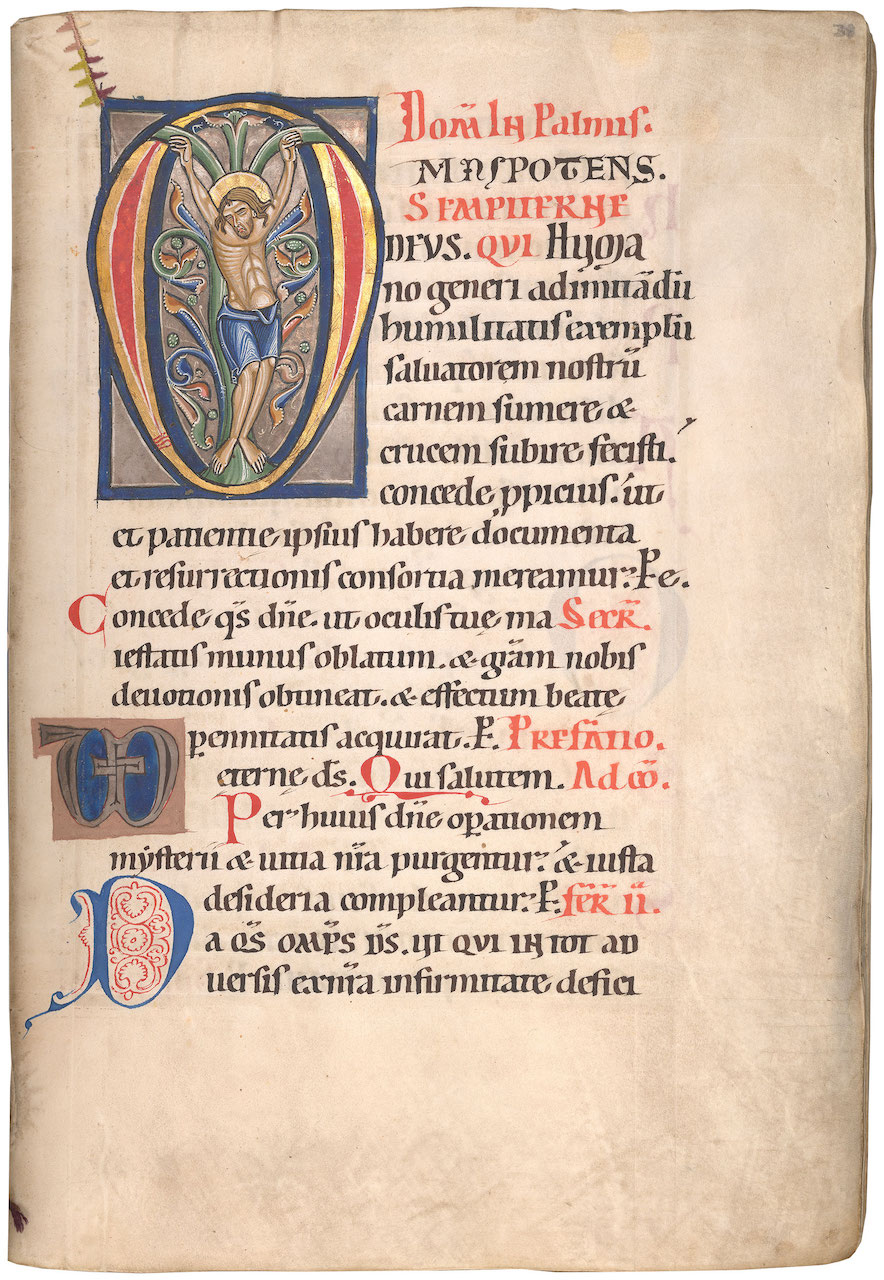 38
Dom̄ In Palmis.
MNIPOTENS.
SEMPITERNE
DEVS. QUI Humа
no generi ad imitādū
humilitatis exemplū
saluatorem nostrū
carnem sumere &
crucem subire fecisti.
concede ꝓpicius. ut
et patientie ipsius habere documenta
et resurrectionis consortia mereamur. Pe.
Concede qs̄ dn̄e. ut oculis tue ma Secr̄.
iestatis munus oblatum. & grām nobis
deuotionis obtineat. & effectum beate
pennitatis acquirat. P. PREFATIO.
eterne ds̄. Qui salutem. Ad cō.
Per huius dn̄e oꝑationem
mẏsterii & uitia nr̄a purgentur. & iusta
desideria compleantur. P. fer̄ II.
DA QS̄ OMP̄S D̄S. UT QUI IN TOT AD
uersis ex nr̄a infirmitate defici